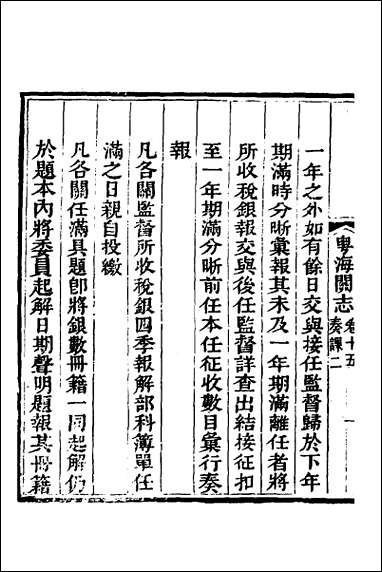 粵海關志 卷十五 奏課二
一年之外如有餘日交與接任監督歸於下年
期滿時分晰彙報其未及一年期滿離任者將
所收稅銀報交與後任監督詳查出結接征扣
至一年期滿分晰前任本任征收數目彙行奏
報
凡各關監督所收稅銀四季報解部科簿單任
滿之日親自投繳
凡各關任滿具題卽將銀數冊籍一同起解仍
於題本內將委員起解日期聲明題報其冊籍